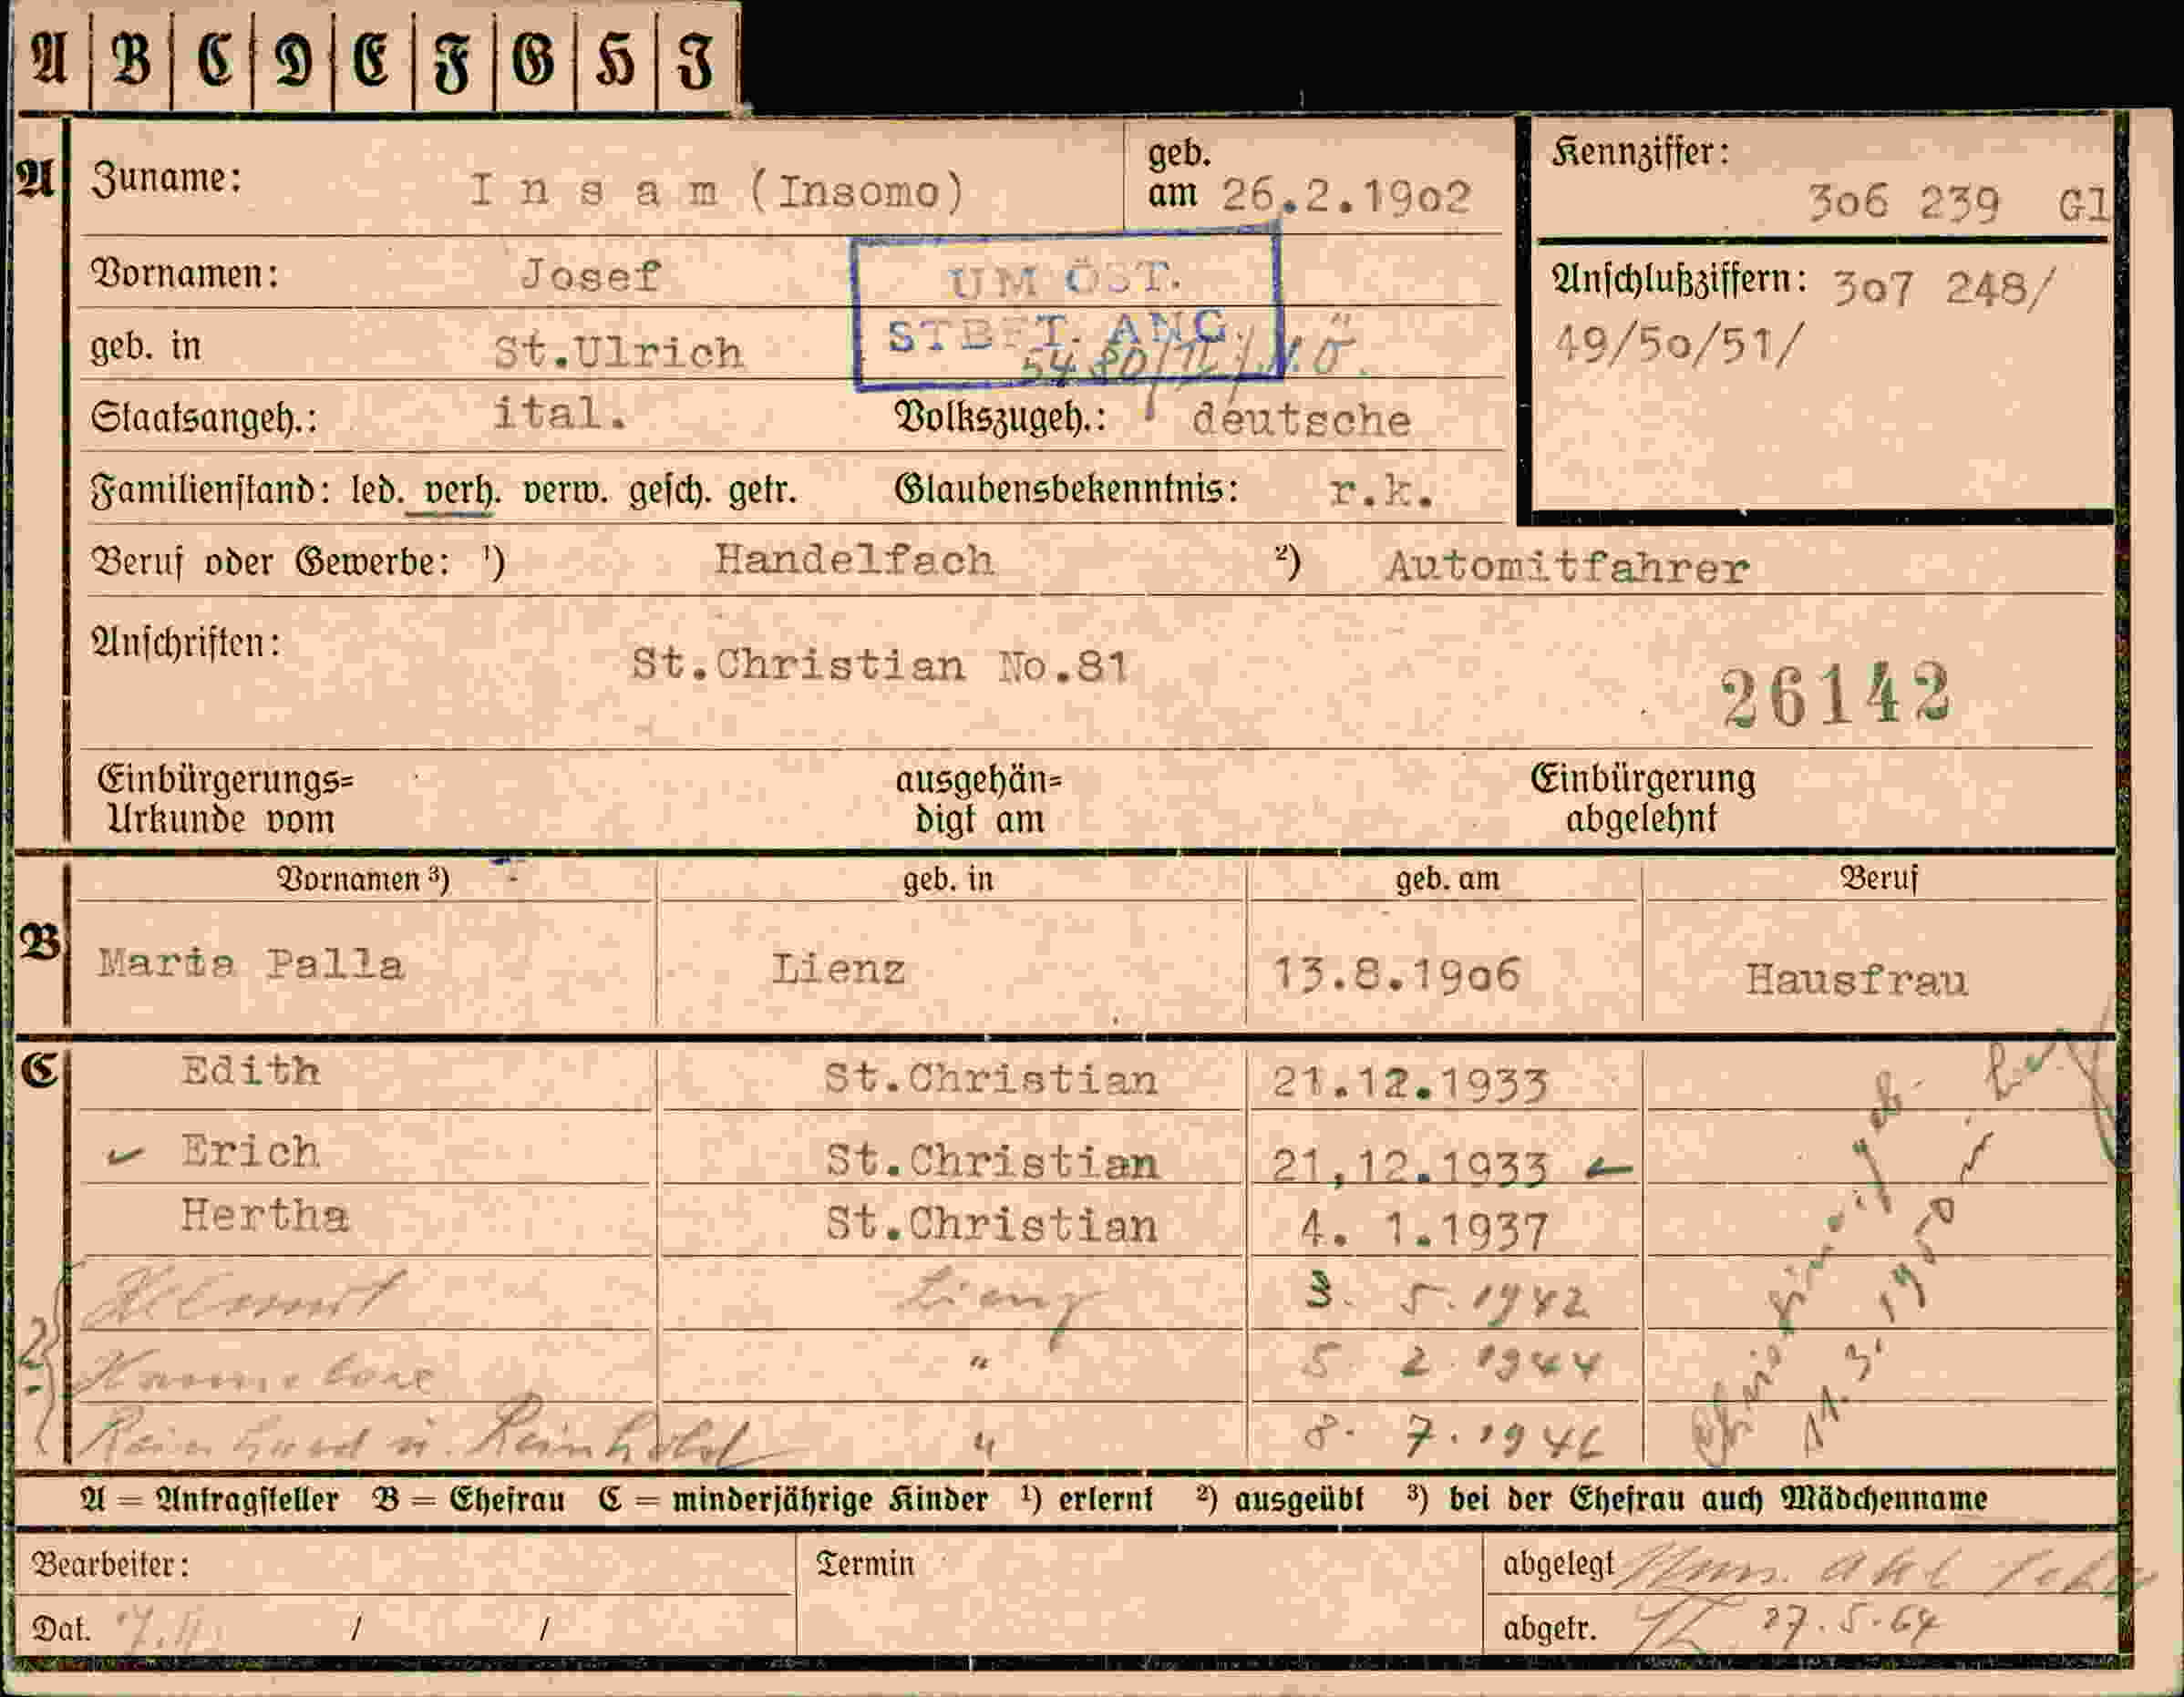 A B C D E F G H I
A Zuname: Insam (Insomo) geb. am 26.2.1902
Kennziffer: 306 239 Gl
Vornamen: Josef
UM ÖST.
STBGT. ANG.
Anschlußziffern: 307 248/
49/50/51/
geb. in St.Ulrich
Staatsangeh.: ital. Volkszugeh.: deutsche
Familienstand: led. verh. verw. gesch. getr. Glaubensbekenntnis: r.k.
Beruf oder Gewerbe: ¹) Handelfach ²) Automitfahrer
Anschriften: St.Christian No.81
26142
Einbürgerungs= Urkunde vom ausgehän= digt am Einbürgerung abgelehnt
Vornamen ³) geb. in geb. am Beruf
B Maria Palla Lienz 13.8.1906 Hausfrau
C Edith St.Christian 21.12.1933
Erich St.Christian 21,12.1933
Hertha St.Christian 4. 1.1937
Helmut Lienz 3. 5. 1942
Hannelore " 5. 2. 1944
Reinhard u. Reinhold " 8. 7. 1946
geb.
11.3.1950 in
A = Antragsteller B = Ehefrau C = minderjährige Kinder ¹) erlernt ²) ausgeübt ³) bei der Ehefrau auch Mädchenname
Bearbeiter: Termin abgelegt
Dat. / / abgetr. 27.5.64